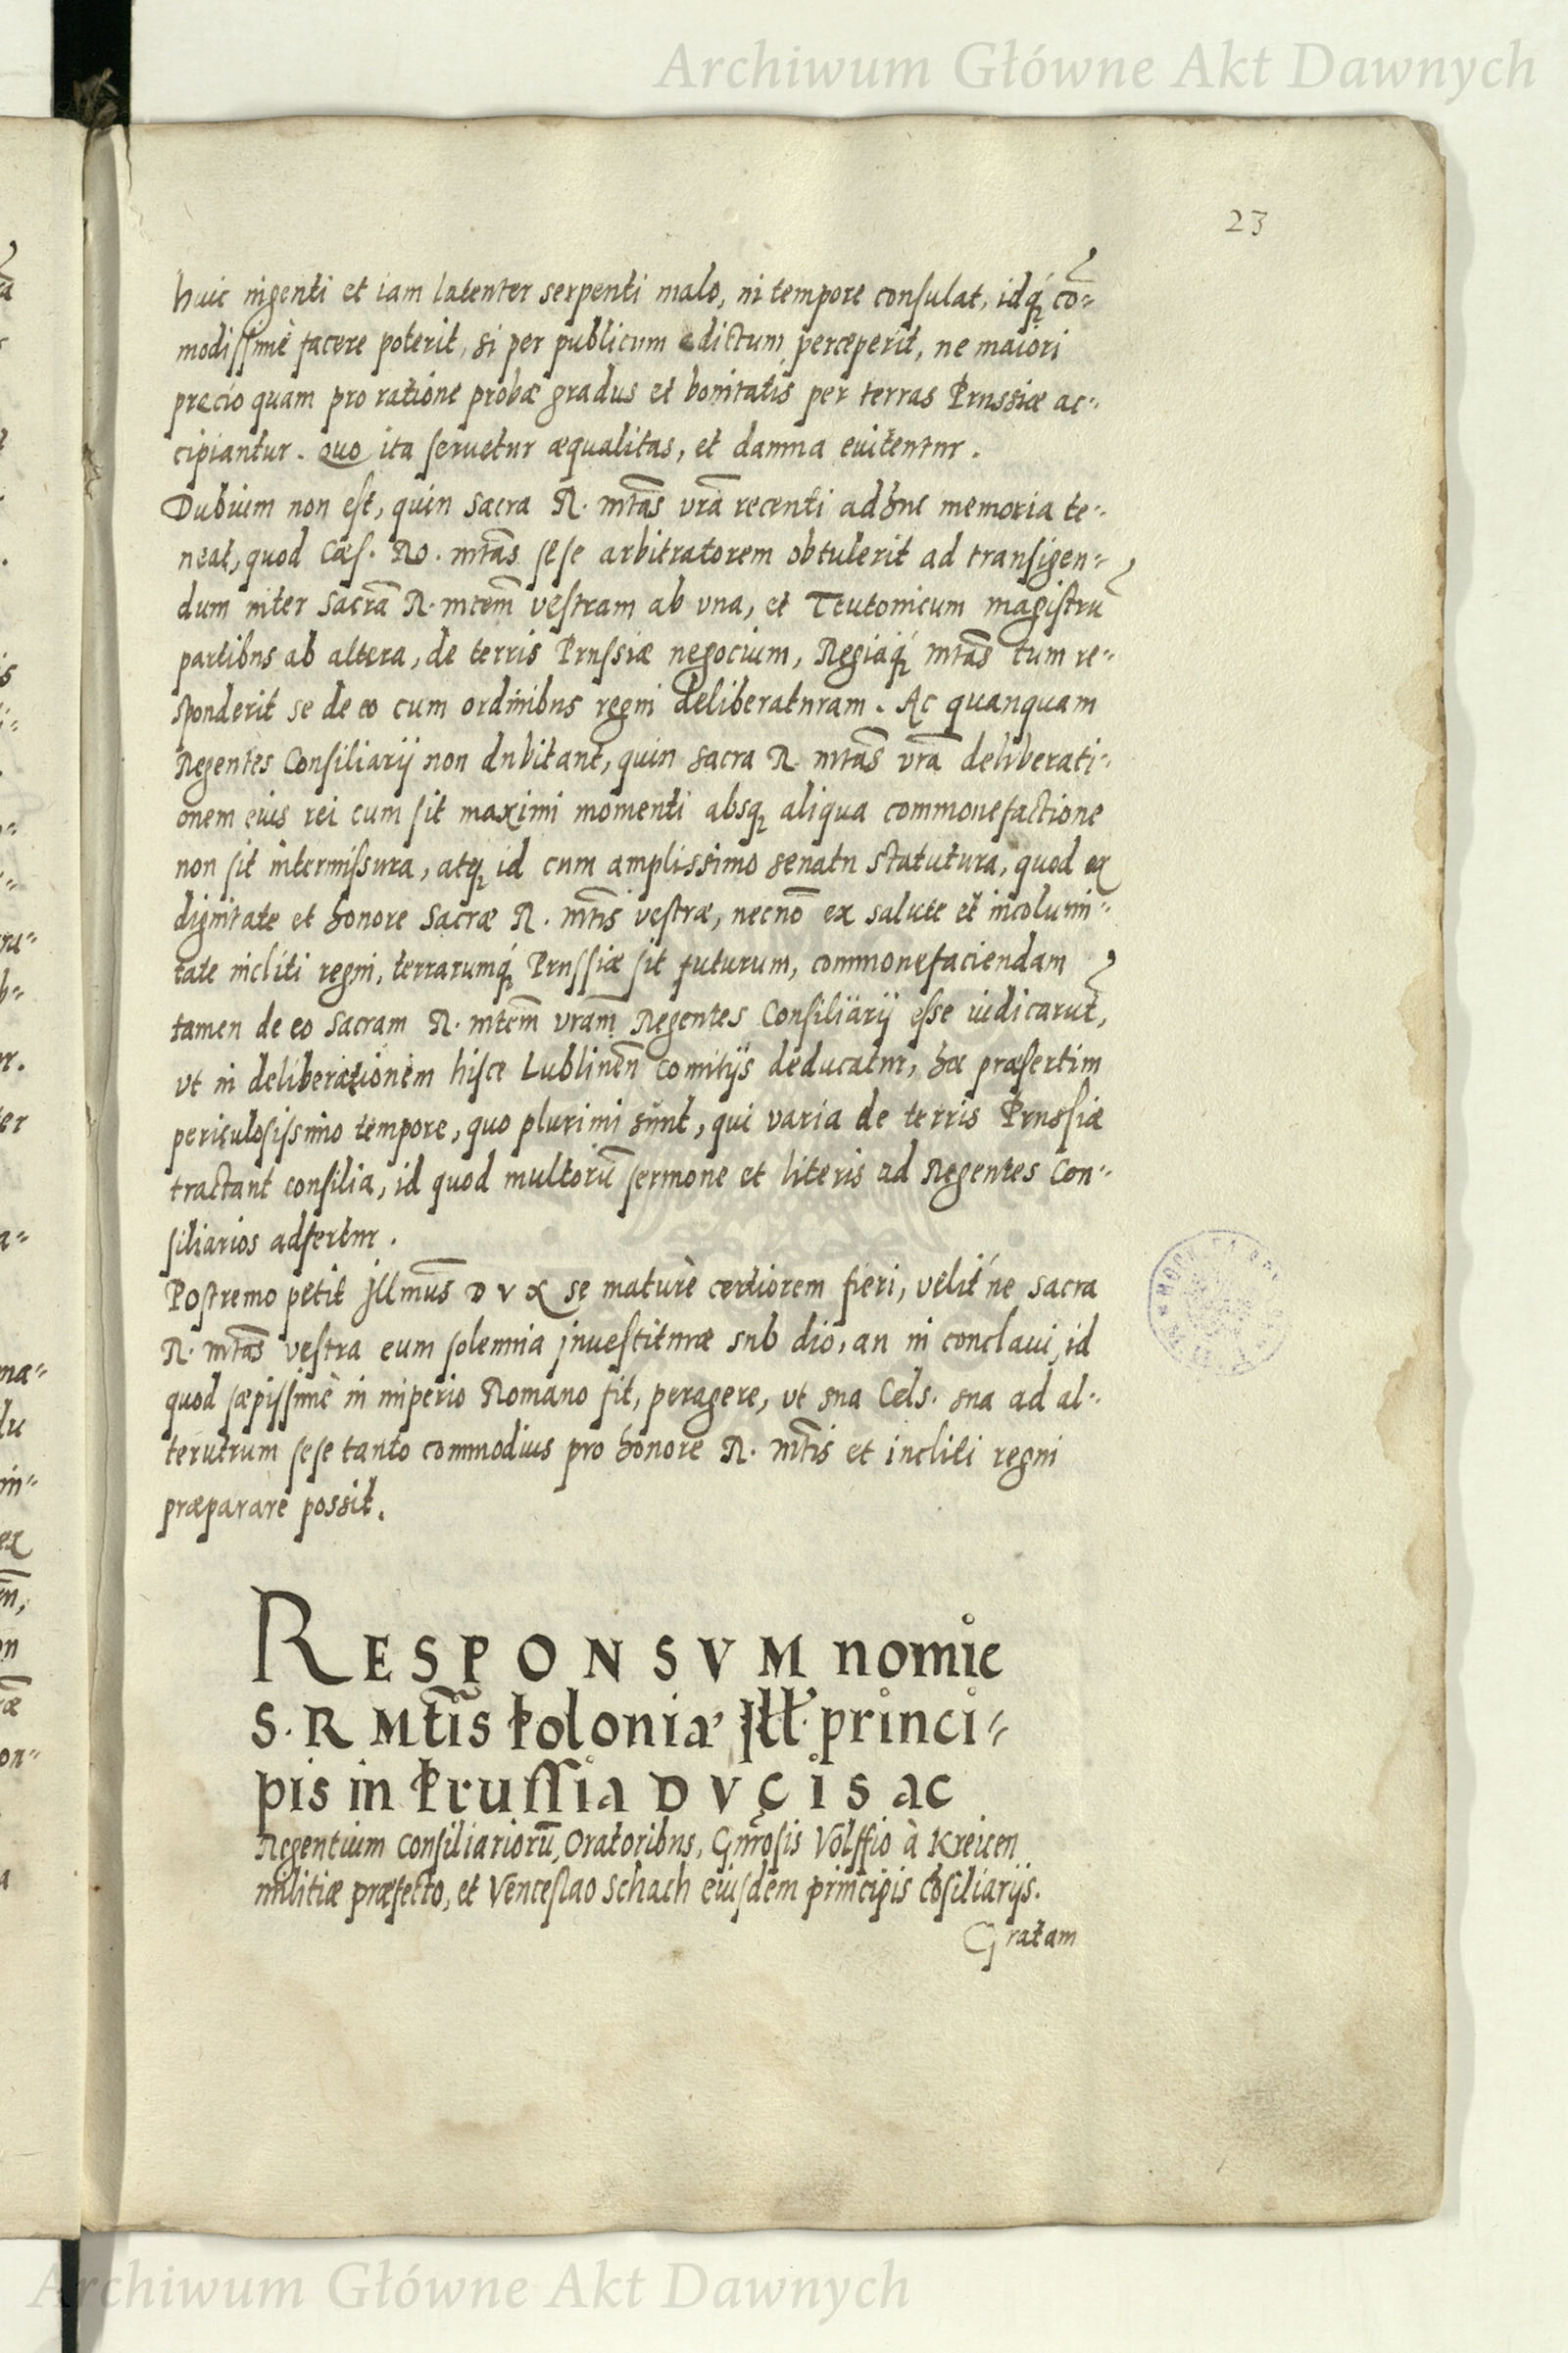 Archiwum Główne Akt Dawnych
23
huic ingenti et iam latenter serpenti malo, ni tempore consulat, idq́ꝫ cō-
modissimè facere poterit, si per publicum edictum perceperit, ne maiori
precio quam pro ratione probæ gradus et bonitatis per terras Prussiæ ac-
cipiantur. Quo ita servetur æqualitas, et damna evitentur.
Dubium non est, quin Sacra R. mtās vrā recenti adhuc memoria te-
neat, quod Cæs. Ro. mtās sese arbitratorem obtulerit ad transigen-
dum inter Sacrā R. mtem̄ vestram ab vna, et Teutonicum magistrū
partibus ab altera, de terris Prussiæ negocium, Regiaq́ꝫ mtās tum re-
sponderit se de eo cum ordinibus regni deliberaturam. Ac quanquam
Regentes Consiliarij non dubitant, quin sacra R. mtās vrā deliberati-
onem eius rei cum sit maximi momenti absqꝫ aliqua commonefactione
non sit intermissura, atqꝫ id cum amplissimo senatu statutura, quod ex
dignitate et honore Sacræ R. mtīs vestræ, necnō ex salute et incolumi-
tate incliti regni, terrarumq́ꝫ Prussiæ sit futurum, commonefaciendam
tamen de eo Sacram R. mtem̄ vram̄ Regentes Consiliarij esse iudicarūt,
vt in deliberationem hisce Lublinen̄ comitijs deducatur, hoc præsertim
periculosissimo tempore, quo plurimi sunt, qui varia de terris Prussiæ
tractant consilia, id quod multorū sermone et literis ad Regentes Con-
siliarios adfertur.
Postremo petit Jllmūs DVX se maturè certiorem fieri, velit ne Sacra
R. mtās vestra eum solemnia jnvestituræ sub dio, an in conclavi, id
quod sæpissimè in imperio Romano fit, peragere, vt sua Cels. sua ad al-
terutrum sese tanto commodius pro honore R. mtīs et incliti regni
præparare possit.
RESPONSVM nomie
S. R Mtīs Poloniæ Jll: princi-
pis in Prussia DVCIS ac
Regentium Consiliariorū, Oratoribus, Gnrōsis Volffio à Kreicen
militiæ præfecto, et Venceslao Schach eiusdem principis cōsiliarijs.
Gratam
Archiwum Główne Akt Dawnych